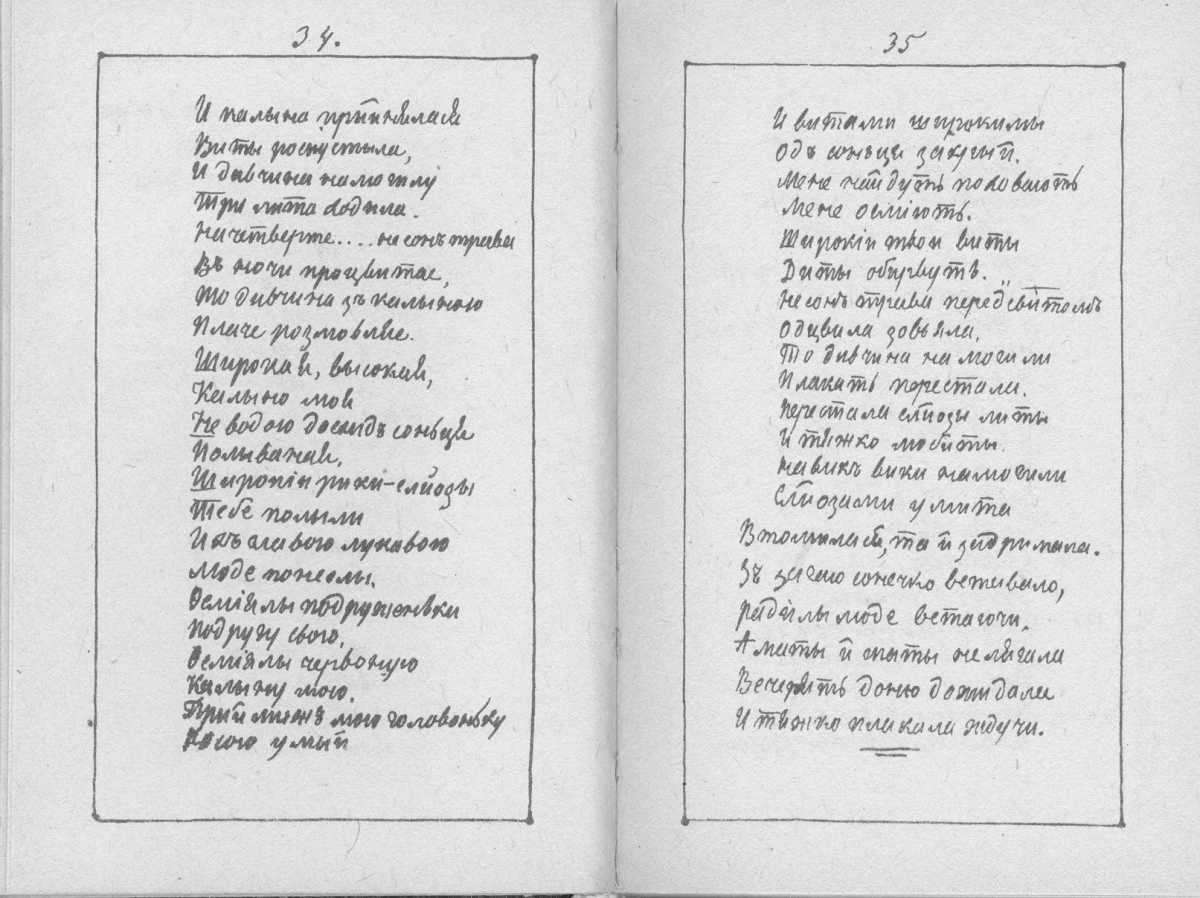 34.
И калына прыйнялася
Виты роспустыла,
И дивчина на могилу
Три лита ходила.
На четверте.... не сонъ трава
Въ ночи процвитае,
То дивчина зъ калыною
Плаче розмовляе.
Широкая, высокая,
Калыно моя
Не водою до схидъ соньця
Полываная,
Широкіи рики-слйозы
Тебе полылы
Ихъ славою лукавою
Люде понеслы.
Осміялы подруженьки
Подругу свою,
Осміялы червоную
Калыну мою.
Прый мою головоньку
Росою умый
35
И витами широкимы
Одъ соньця закрый.
Мене найдуть поховають
Мене осміють.
Широкіи твои виты
Диты обирвуть.
Не сонъ трава передсвитомъ
Одцвила зовьяла,
То дивчина на могили
Плакать перестала.
Перестала слйозы литы
И тяжко любыты.
На викъ вики на могили
Слйозами умита
Втомилася, та й задримала.
Зъ за гаю сонечко вставало,
Радилы люде встаючи,
А маты й спаты не лягала
Вечерять доню дожидала
И тяжко плакала ждучи.